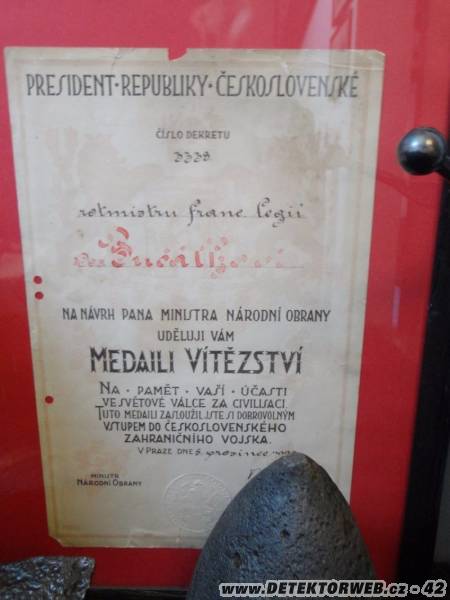 PRESIDENT·REPUBLIKY·ČESKOSLOVENSKÉ
ČÍSLO DEKRETU
3338
rotmistru franc legií
NA NÁVRH PANA MINISTRA NÁRODNÍ OBRANY
UDĚLUJI VÁM
MEDAILI VÍTĚZSTVÍ
NA·PAMĚT·VAŠÍ·ÚČASTI
VE SVĚTOVÉ VÁLCE ZA CIVILISACI.
TUTO MEDAILI ZASLOUŽIL JSTE SI DOBROVOLNÝM
VSTUPEM DO ČESKOSLOVENSKÉHO
ZAHRANIČNÍHO VOJSKA.
V PRAZE DNE 5. prosince
MINISTR
NÁRODNÍ OBRANY
www.DETEKTORWEB.cz - 42